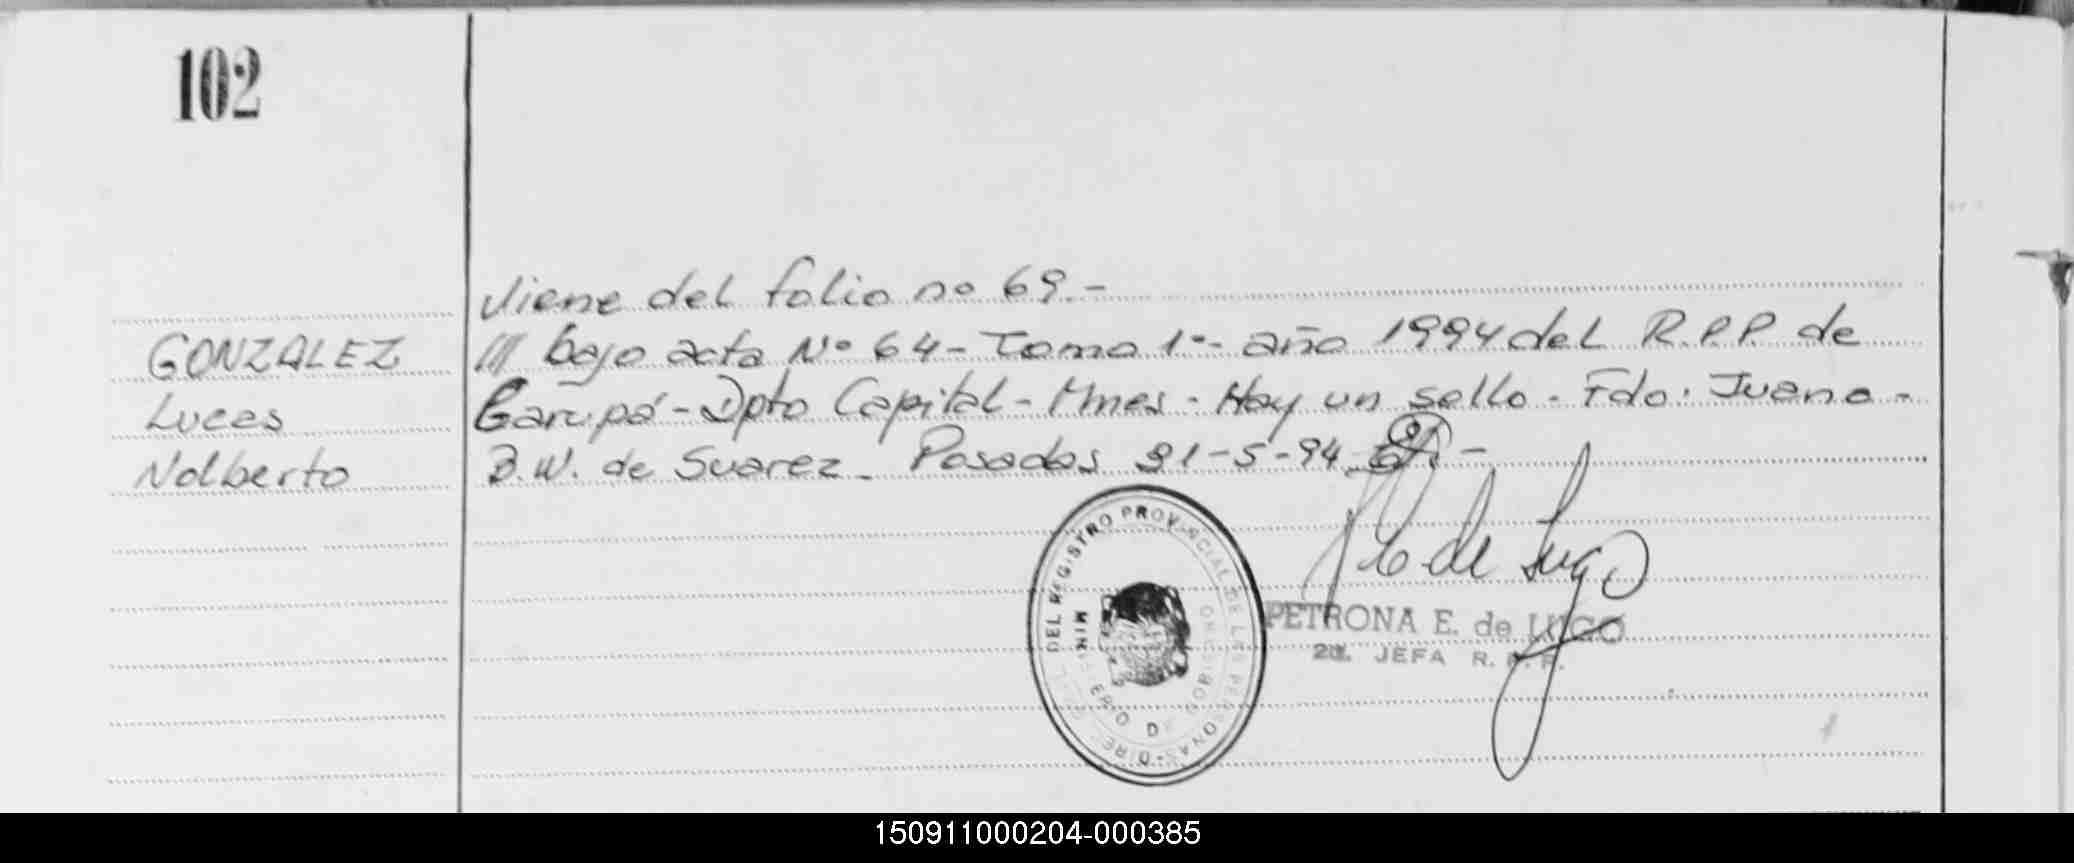 102
Viene del folio no 69.-
GONZALEZ
/// bajo acta Nº 64 - Tomo 1º- año 1994 del R.P.P. de
Lucas
Garupá - Dpto Capital - Mnes - Hay un sello - Fdo: Juana -
Nolberto
B.W. de Suarez - Posadas 31-5-94 -
DEL REGISTRO PROVINCIAL DE LAS PERSONAS - DIRE
MINISTERIO DE GOBIERNO
de Lugo
PETRONA E. de LUGO
JEFA R. P. P.
150911000204-000385